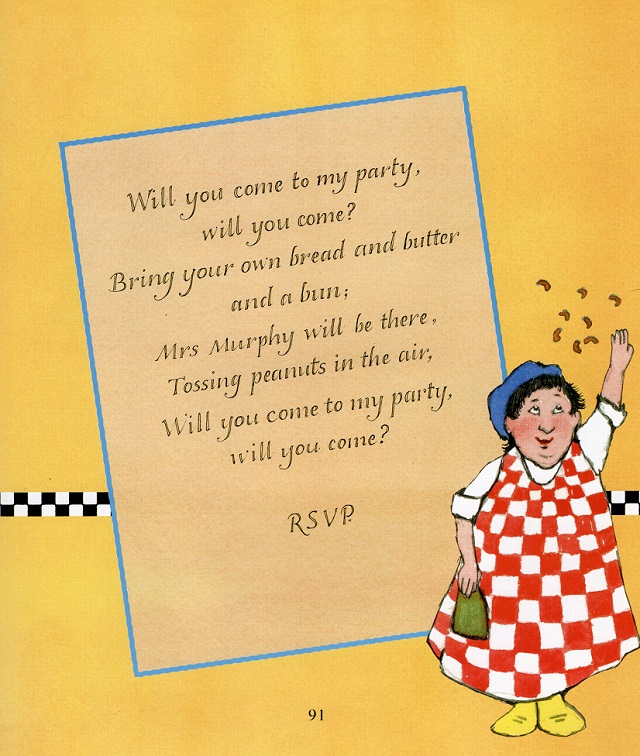 Will you come to my party,
will you come?
Bring your own bread and butter
and a bun;
Mrs Murphy will be there,
Tossing peanuts in the air,
Will you come to my party,
will you come?
RSVP.
91